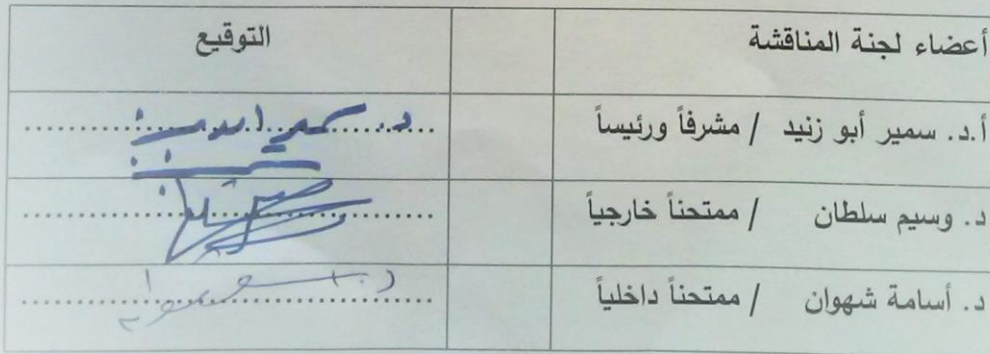 أعضاء لجنة المناقشة التوقيع
أ.د. سمير أبو زنيد / مشرفاً ورئيساً
د. وسيم سلطان / ممتحناً خارجياً
د. أسامة شهوان / ممتحناً داخلياً